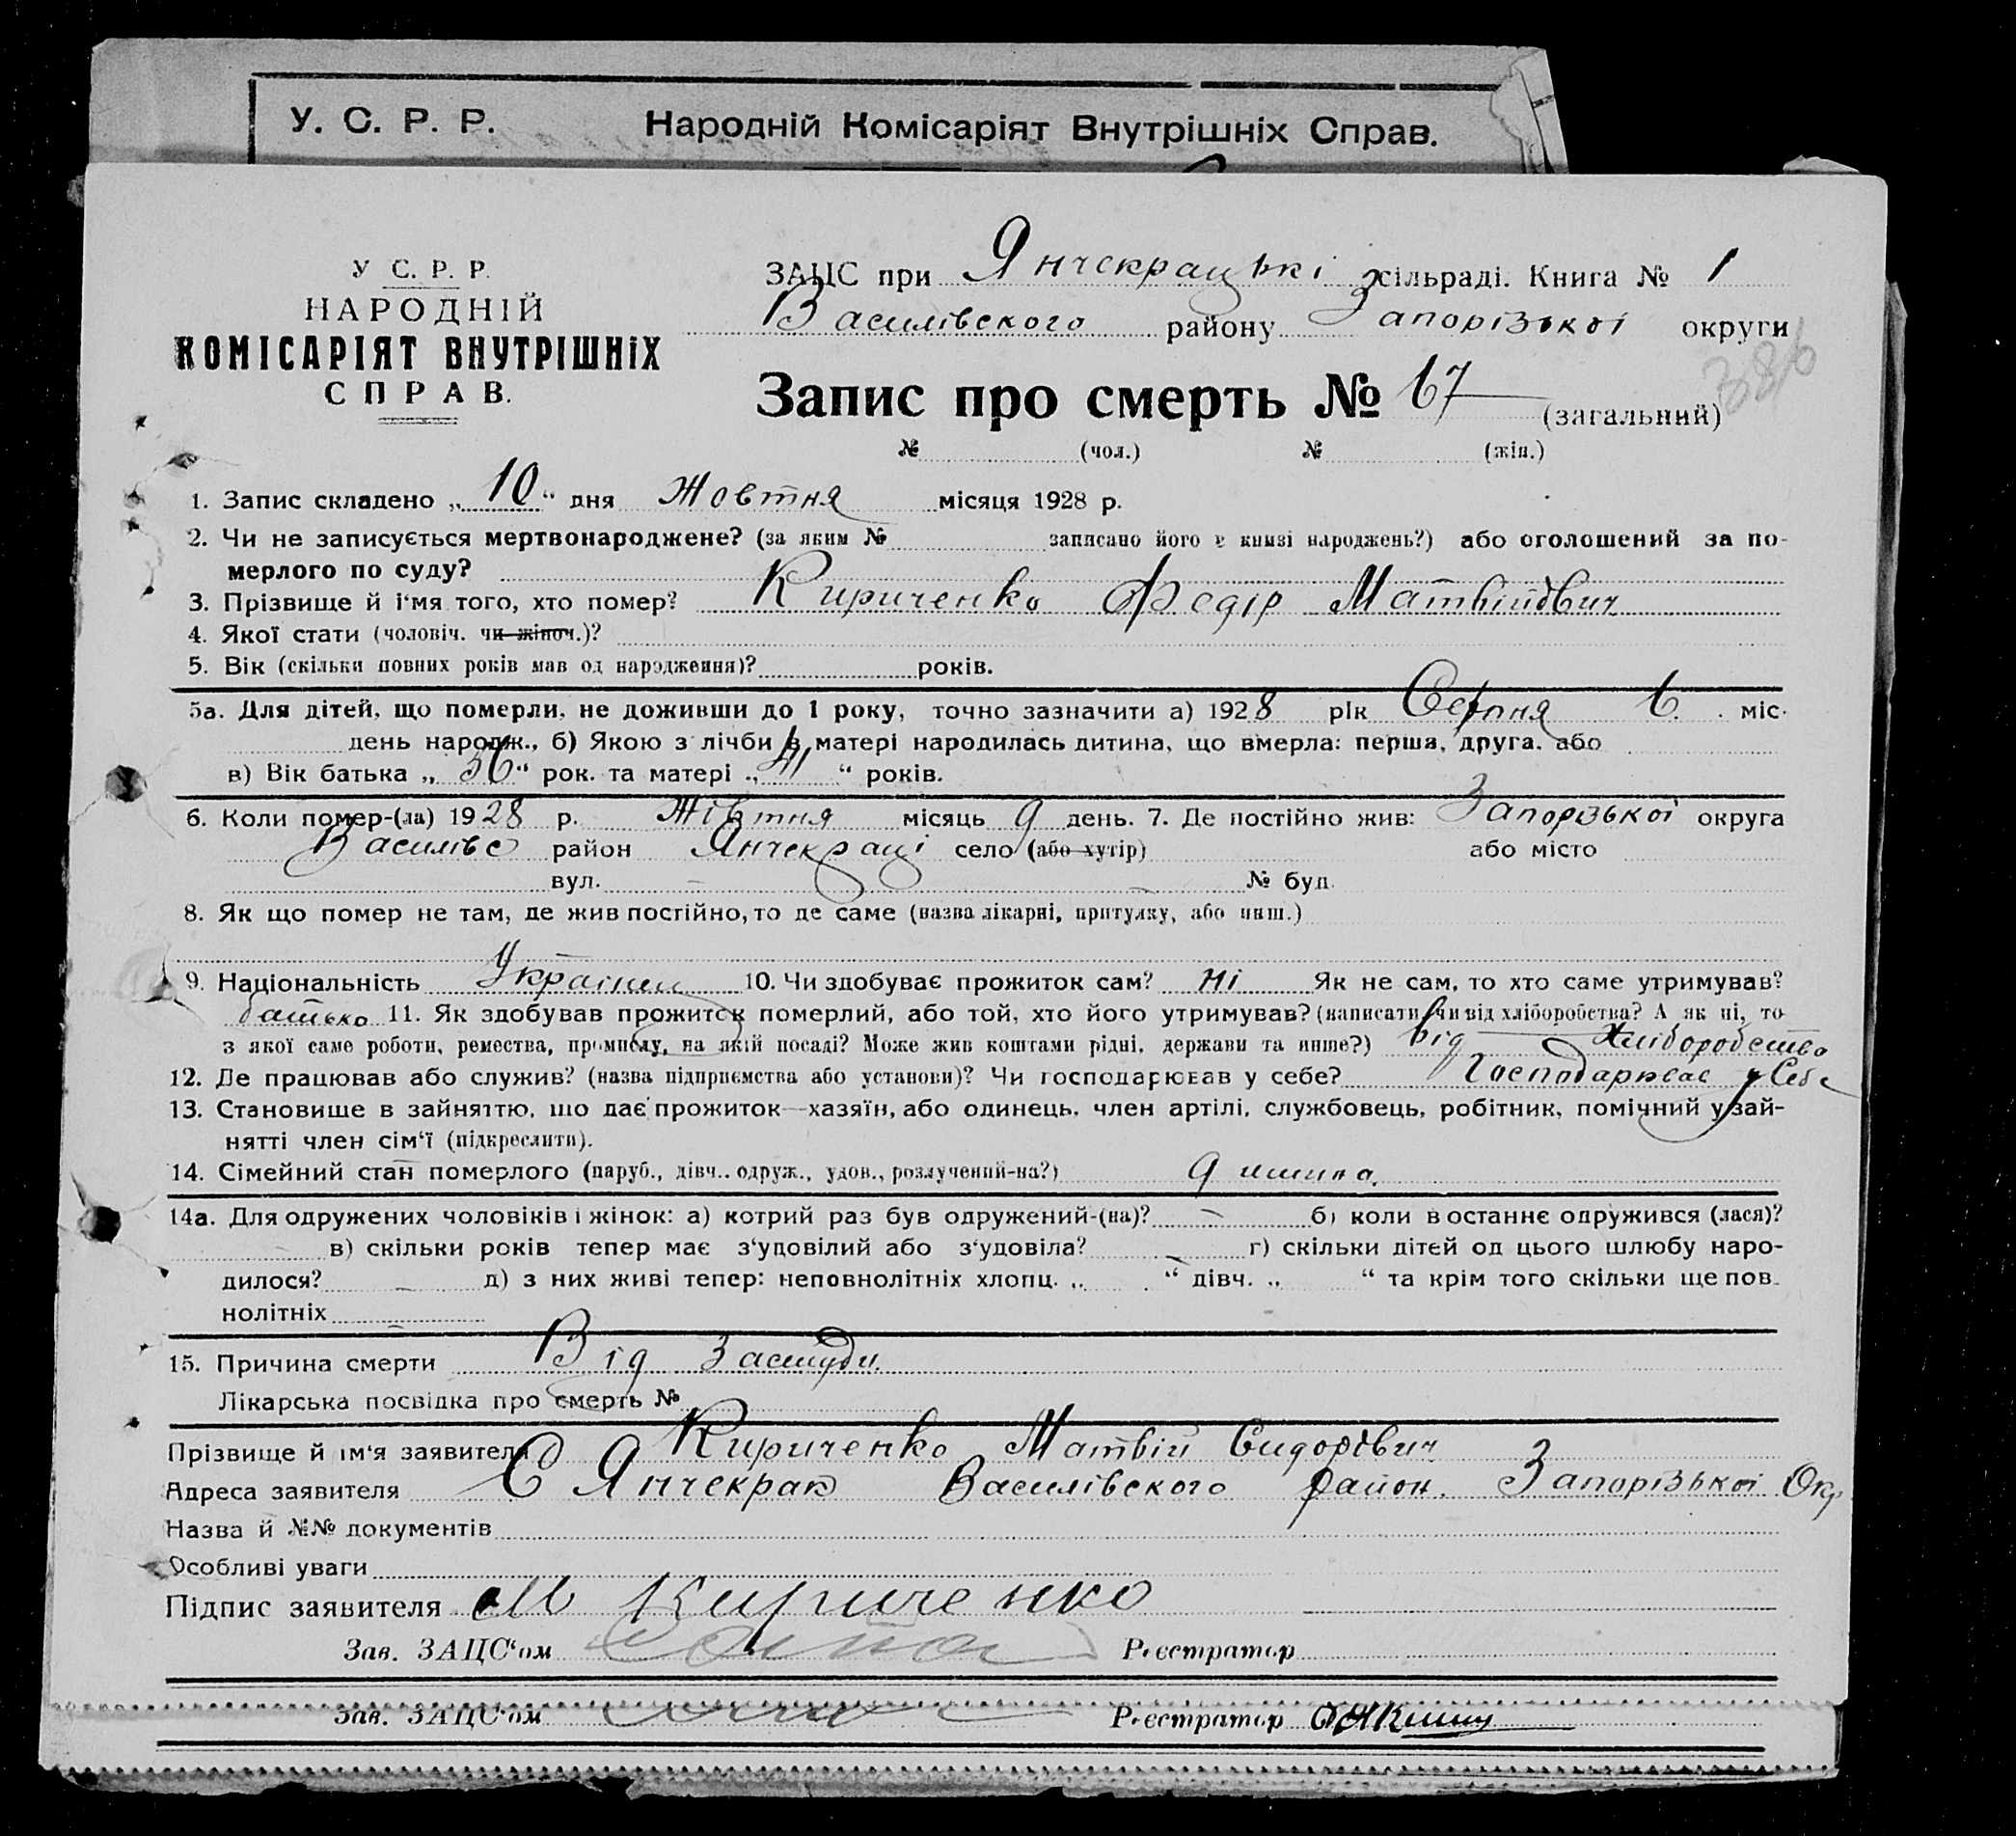 У. С. Р. Р. Народній Комісаріят Внутрішніх Справ.
У С. Р. Р.
НАРОДНІЙ
КОМІСАРІЯТ ВНУТРІШНІХ
СПРАВ.
ЗАЦС при Янчекрацькі сільраді. Книга № 1
Василівского району Запорізької округи
386
Запис про смерть № 67 (загальний)
№ (чол.) № (жін.)
1. Запис складено „10“ дня Жовтня місяця 1928 р.
2. Чи не записується мертвонароджене? (за яким № записано його в книзі народжень?) або оголошений за по-
мерлого по суду?
3. Прізвище й і'мя того, хто помер? Кириченко Федір Матвійович
4. Якої стати (чоловіч. чи жіноч.)?
5. Вік (скільки повних років мав од народження)? років.
5а. Для дітей, що померли, не доживши до 1 року, точно зазначити а) 1928 рік Серпня 6. міс.
день народж., б) Якою з лічби в матері народилась дитина, що вмерла: перша, друга, або
в) Вік батька „36“ рок. та матері „41“ років.
6. Коли помер-(ла) 1928 р. Жівтня місяць 9 день. 7. Де постійно жив: Запорізької округа
Василівс район Янчекраці село (або хутір) або місто
вул. № буд.
8. Як що помер не там, де жив постійно, то де саме (назва лікарні, притулку, або инш.)
9. Національність Українец 10. Чи здобуває прожиток сам? Ні Як не сам, то хто саме утримував?
батько 11. Як здобував прожиток померлий, або той, хто його утримував? (написати, чи від хліборобства? А як ні, то
з якої саме роботи, ремества, промислу, на якій посаді? Може жив коштами рідні, держави та инше?) від Хліборобство
12. Де працював або служив? (назва підприємства або установи)? Чи господарював у себе? Господарював у Себе
13. Становище в зайняттю, що дає прожиток—хазяїн, або одинець, член артілі, службовець, робітник, помічний у зай-
нятті член сім'ї (підкреслити).
14. Сімейний стан померлого (паруб., дівч.. одруж., удов., розлучений-на?) дитина.
14а. Для одружених чоловіків і жінок: а) котрий раз був одружений-(на)? б) коли в останнє одружився (лася)?
в) скільки років тепер має з'удовілий або з'удовіла? г) скільки дітей од цього шлюбу наро-
дилося? д) з них живі тепер: неповнолітніх хлопц. „ “ дівч. „ “ та крім того скільки ще пов-
нолітніх
15. Причина смерти Від Застуди
Лікарська посвідка про смерть №
Прізвище й ім'я заявителя Кириченко Матвій Сидорівич
Адреса заявителя С Янчекрак Василівского район. Запорізької Окр
Назва й №№ документів
Особливі уваги
Підпис заявителя М Кириченко
Зав. ЗАЦС'ом Реєстратор
Зав. ЗАЦС'ом Реєстратор